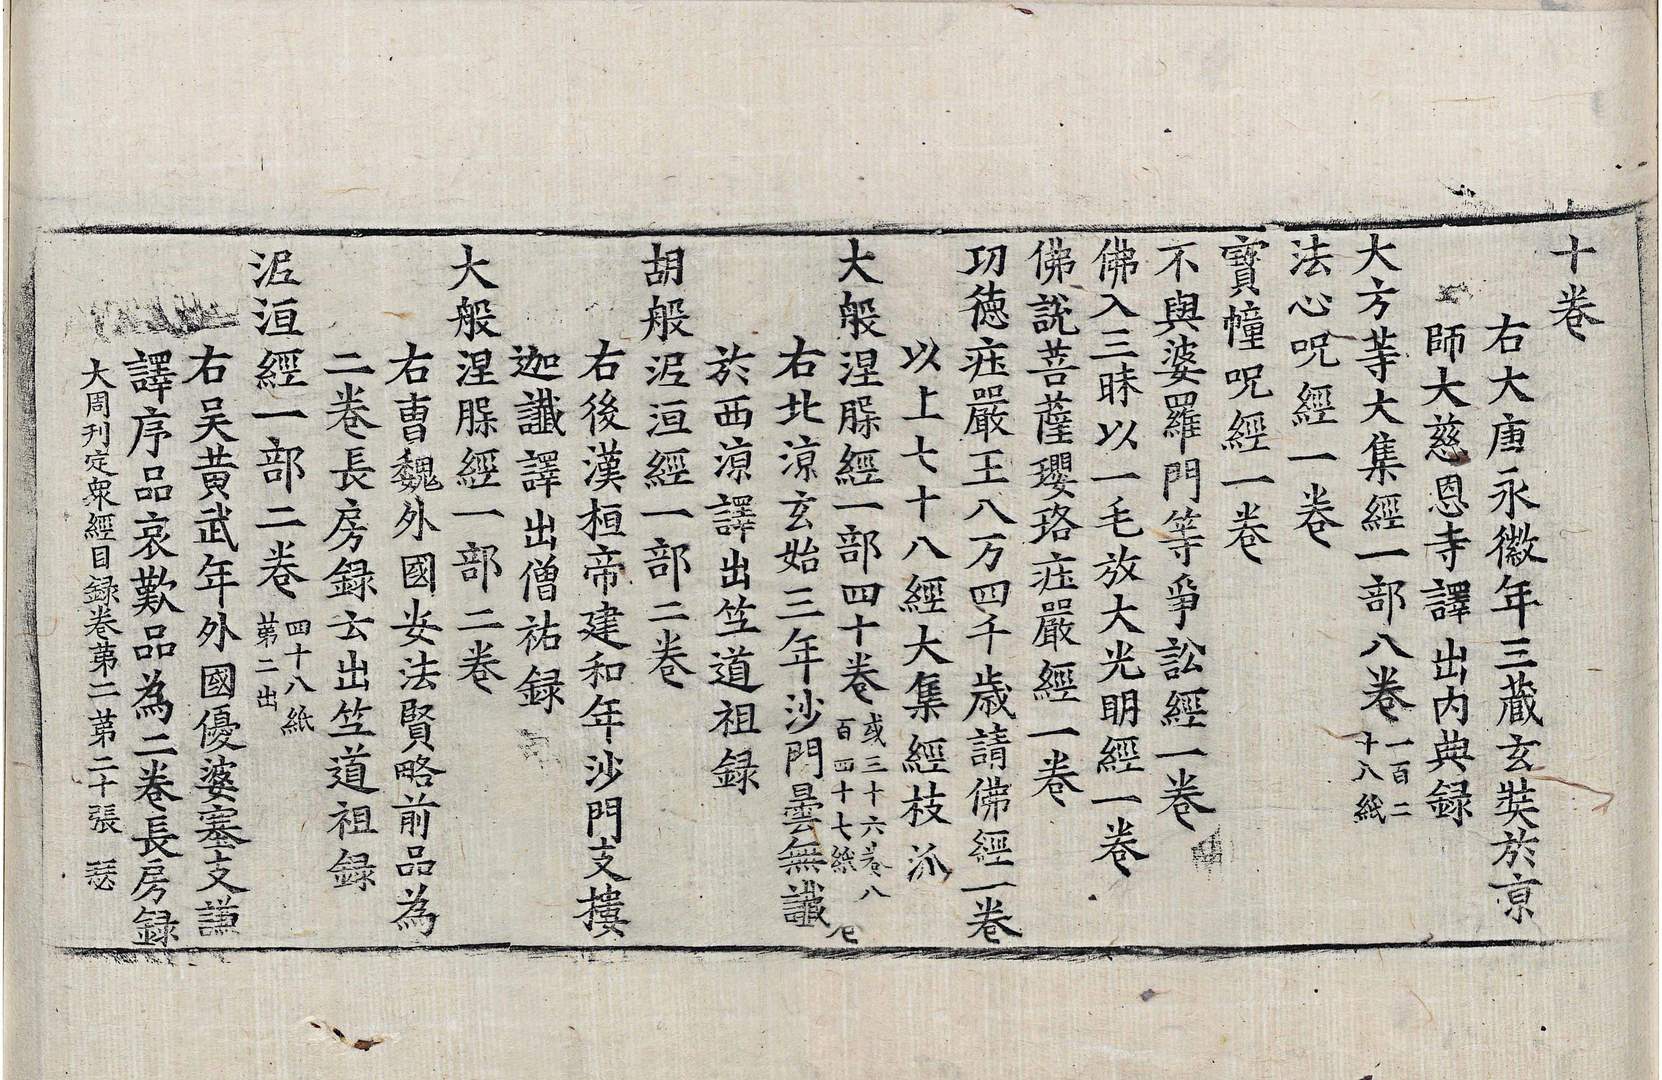 十卷
右大唐永徽年三藏玄奘於京
師大慈恩寺譯出內典録
大方等大集經一部八卷 一百二十八紙
法心呪經一卷
寶幢呪經一卷
不與婆羅門等爭訟經一卷
佛入三昧以一毛放大光明經一卷
佛說菩薩瓔珞莊嚴經一卷
功德莊嚴王八万四千歲請佛經一卷
以上七十八經大集經枝泒
大般涅槃經一部四十卷 或三十六卷八百四十七紙
右北涼玄始三年沙門曇無讖
於西涼譯出竺道祖録
胡般泥洹經一部二卷
右後漢桓帝建和年沙門支樓
迦讖譯出僧祐録
大般涅槃經一部二卷
右曹魏外國安法賢略前品為
二卷長房録云出竺道祖録
泥洹經一部二卷 四十八紙第二出
右吴黄武年外國優婆塞支謙
譯序品哀歎品為二卷長房録
大周刊定衆經目録卷第二第二十張